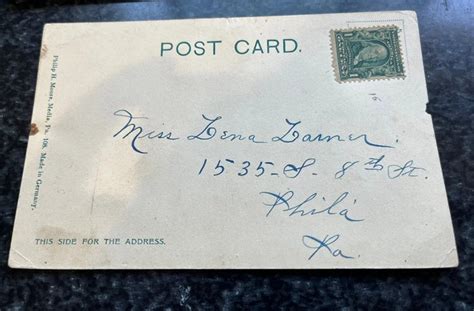 POST CARD.
Philip H. Moore, Media, Pa. 108. Made in Germany.
Miss Lena Larner.
1535-S-8th St.
Phila
Pa.
THIS SIDE FOR THE ADDRESS.